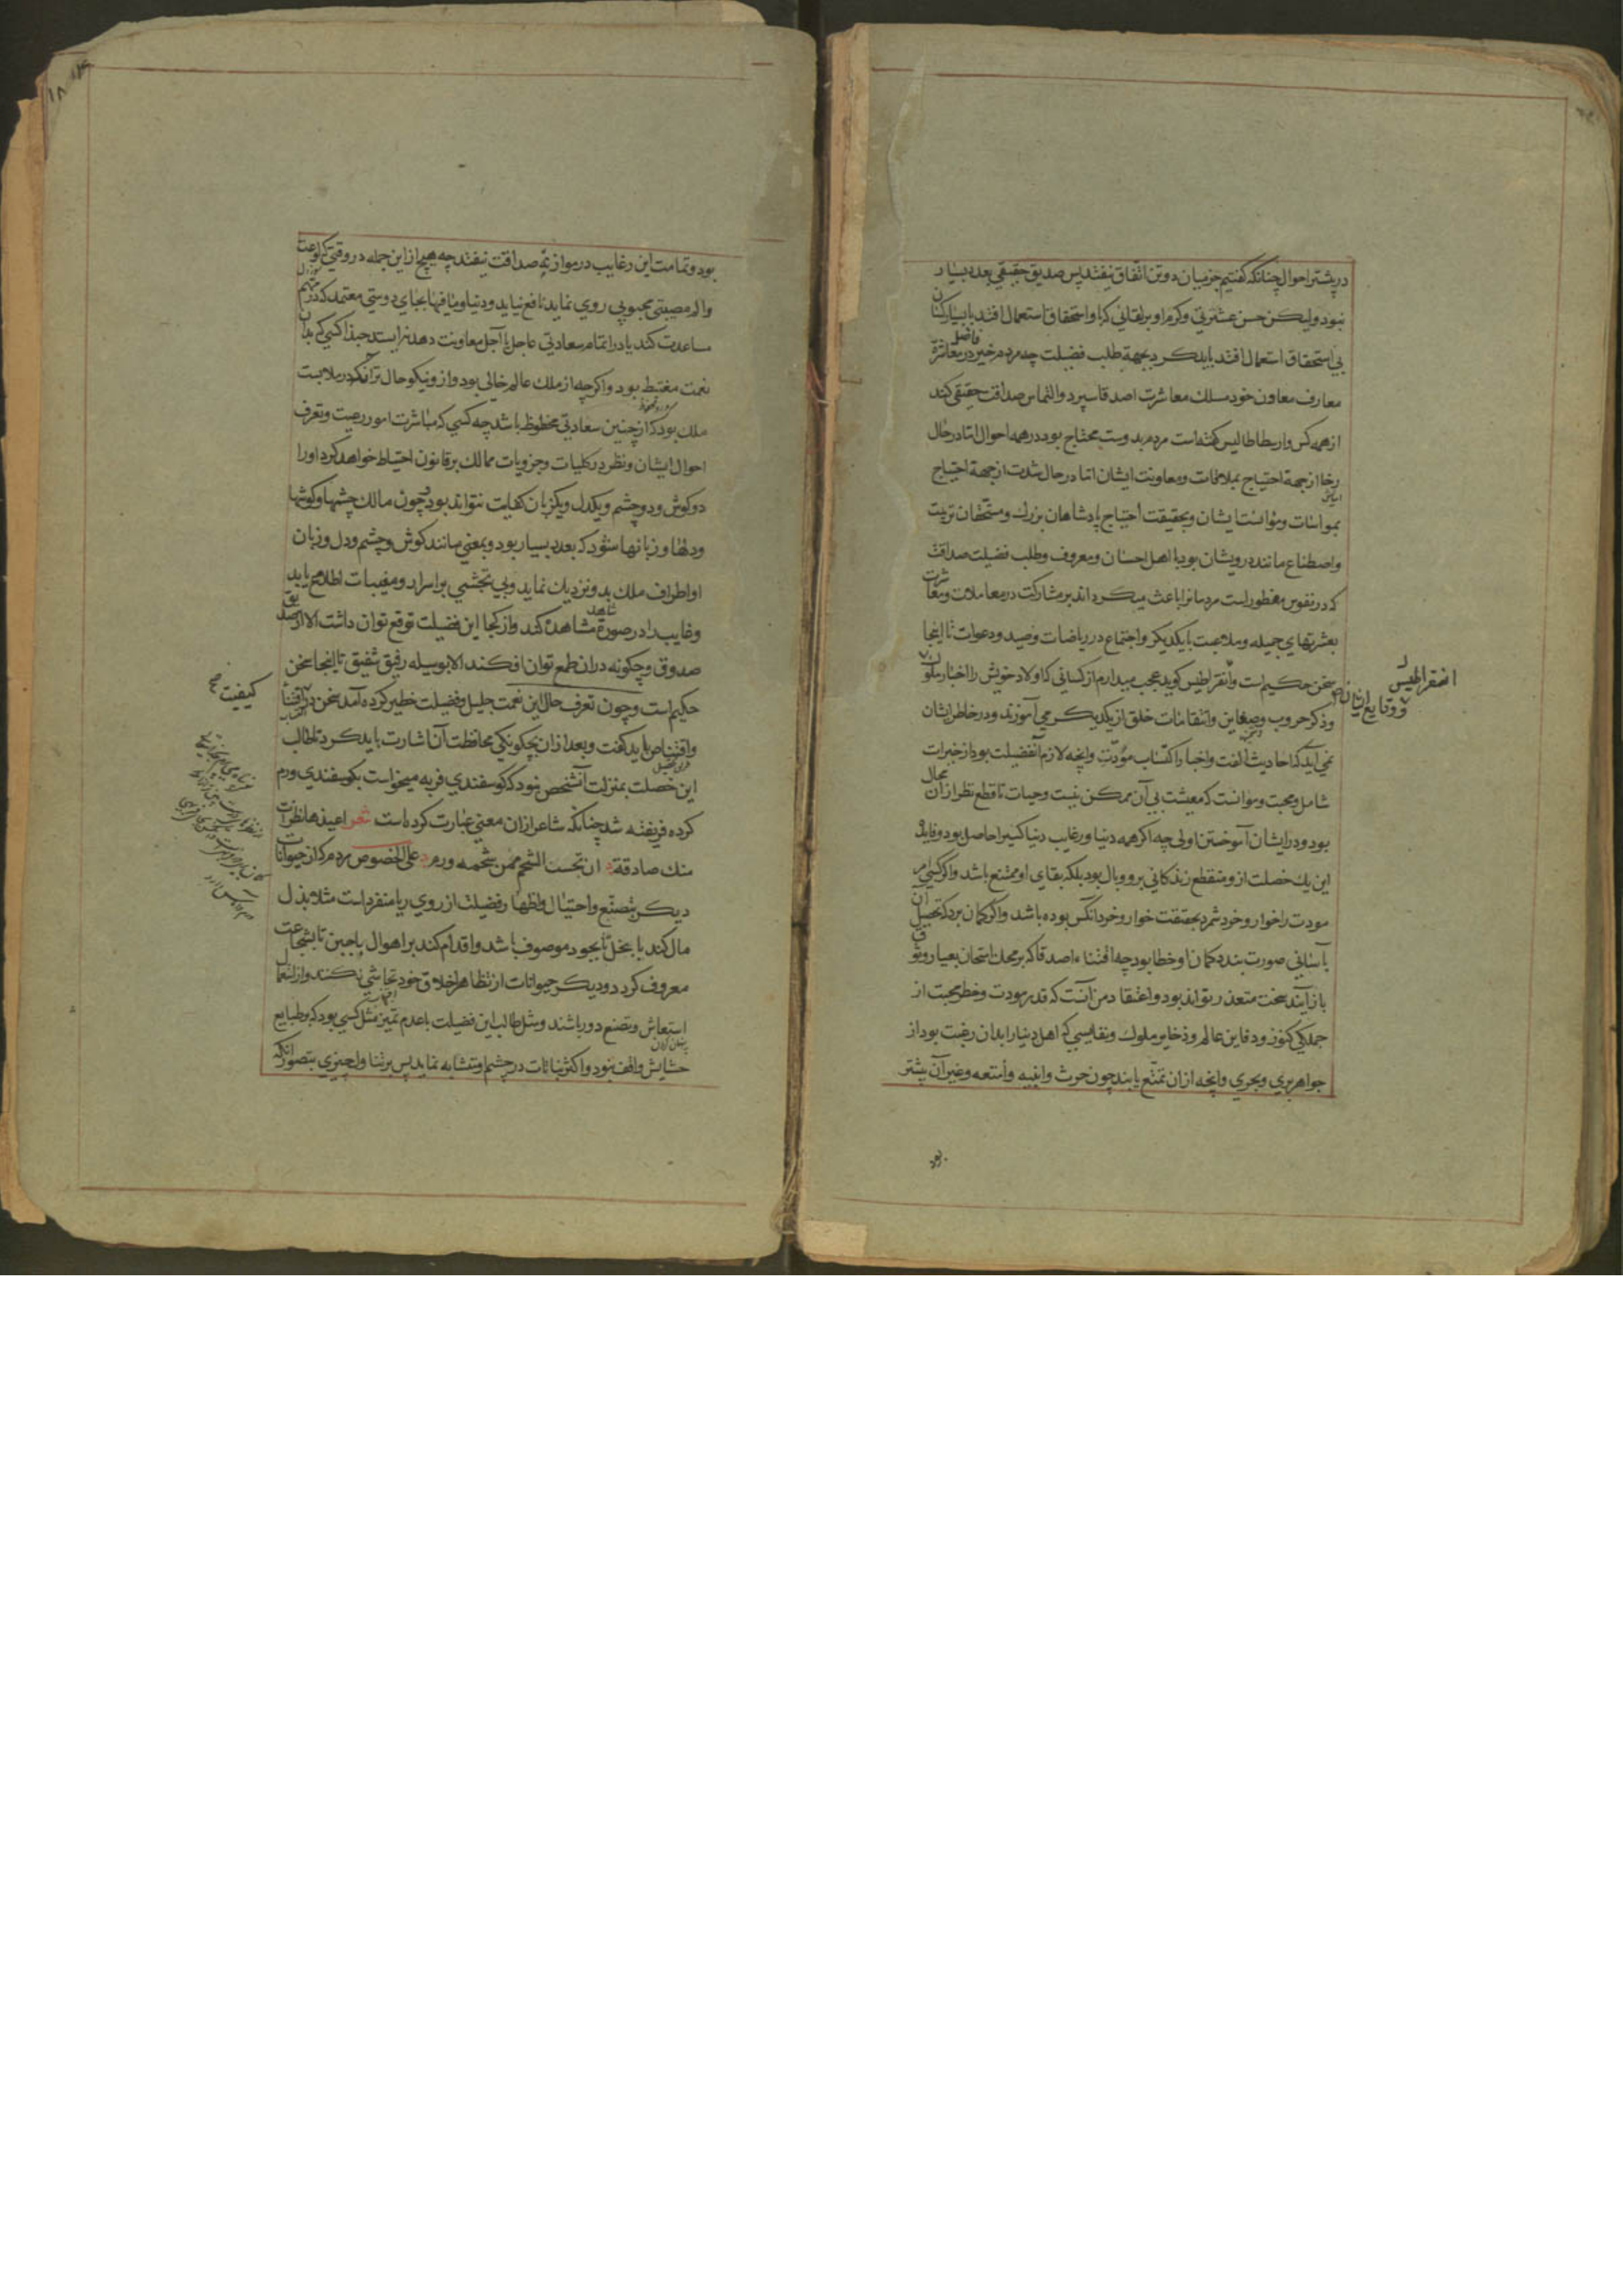 در بیشتر احوال چنانکه گفتیم جز میان دو تن اتفاق نیفتد پس صدیق حقیقی بعدد بسیار
نبود ولیکن حسن عشرتی وکرم او برلقائی که با واستحقاق استعمال افتد با بسیار کسان
بی استحقاق استعمال افتد باید کرد بجهة طلب فضیلت چه مردم خیر فاضل در معاشرة
معارف معاون خود مسلک معاشرت اصدقا سپرد والتماس صداقت حقیقی کند
از همه کس وارسطاطالیس گفته است مردم بدوست محتاج بود در همه احوال اما در حال
رخا از جهة احتیاج بملاقات ومعاونت ایشان اما در حال شدت از جهة احتیاج
بمواسات ومؤانست ایشان وبحقیقت احتیاج پادشاهان بزرک ومستحقان تربیت
واصطناع مانند درویشان بود با اهل احسان ومعروف وطلب فضیلت صداقت
که در نفوس مفطور است مردمانرا باعث میکرداند بر مشارکت در معاملات ومعاشرت
بعشرتهای جمیله وملاعبت با یکدیکر واجتماع در ریاضات وصید ودعوات تا اینجا
سخن حکیم است وانقراطیس کوید عجب میدارم از کسانی که اولاد خویش را اخبار ملوک
وذکر حروب وضغاین وانتقامات خلق از یکدیکر می آموزند ودر خاطر ایشان
نمی آید که احادیث الفت واخبار اکتساب مودت وانچه لازم آنفضیلت بود از خیرات
شامل ومحبت وموانست که معیشت بی آن ممکن نیست وحیات تا قطع نظر از آن محال
بود ودر ایشان آموختن اولی چه اکر همه دنیا ورغایب دنیا کسیرا حاصل بود وفایدهٔ
این یک خصلت ازو منقطع زندکانی برو وبال بود بلکه بقای او ممتنع باشد واکر کسی امر
مودت را خوار وخرد شمرد بحقیقت خوار وخرد آنکس بوده باشد واکر کمان برد که تحصیل آن
بآسانی صورت بندد کمان او خطا بود چه اقتناء اصدقا که بر محک امتحان بعیار وثوق
باز آیند سخت متعذر تواند بود واعتقاد من آنست که قدر مودت وخطر محبت از
جملکی کنوز ودفاین عالم وذخایر ملوک ونفایسی که اهل دنیا را بدان رغبت بود از
جواهر بری وبحری وانچه ازان تمتع یابند چون حرث وابنیه وأمتعه وغیر آن بیشتر
بود
انقراطیس
ووقایع ایشان
بود وتمامت این رغایب در موازنه صداقت نیفتد چه هیچ از این جمله در وقتی که لوعت
والم مصیبتی محبوبی روی نماید نافع نیاید ودنیا ومافیها بجای دوستی معتمد که در مهم
مساعدت کند یا در اتمام سعادتی عاجل یا آجل معاونت دهد نرا بستد حبذا کسی که بدان
نعمت مغتبط بود واکرچه از ملک عالم خالی بود وازو نیکو حال تر آنکه در ملابست
ملک بود که از چنین سعادتی محظوظ باشد چه کسی که مباشرت امور رعیت وتعرف
احوال ایشان ونظر در کلیات وجزویات ممالک بر قانون احتیاط خواهد کرد او را
دو کوش ودو چشم ویکدل ویکزبان کفایت نتواند بود وچون مالک چشمها وکوشها
ودلها وزبانها شود که بعدد بسیار بود وبمعنی مانند کوش وچشم ودل وزبان
او اطراف ملک بدو نزدیک نماید وبی تجشمی بر اسرار ومغیبات اطلاع یابد
وغایب را در صورة شاهد مشاهده کند واز کجا این فضیلت توقع توان داشت الا از صدیق
صدوق وچکونه دران طمع توان افکند الا بوسیله رفیق شفیق تا اینجا سخن
حکیم است وچون تعرف حال این نعمت جلیل وفضیلت خطیر کرده آمد سخن در اقتنا
واقتناص باید کفت وبعد ازان بچکونکی محافظت آن اشارت باید کرد تا طالب
این خصلت بمنزلت آنشخص نبود که کوسفندی فربه میخواست بکوسفندی ورم
کرده فریفته شد چنانکه شاعر ازان معنی عبارت کرده است شعر اعیذها نظرات
منک صادقة ان تحسب الشحم ممن شحمه ورم علی الخصوص مردم که از حیوانات
دیکر بتصنع واحتیال واظهار فضیلت از روی ریا منفرد است مثلا بذل
مال کند با بخل تا بجود موصوف باشد واقدام کند بر اهوال با جبن تا بشجاعت
معروف کردد ودیکر حیوانات از تظاهر اخلاق خود تحاشی نکنند واز استعمال
استعاش وتصنع دور باشند ومثل طالب این فضیلت با عدم تمیز مثل کسی بود که بر طبایع
حشایش واقف نبود واکثر نباتات در چشم او متشابه نماید پس بر تناول چیزی بتصور آنکه
کیفیت